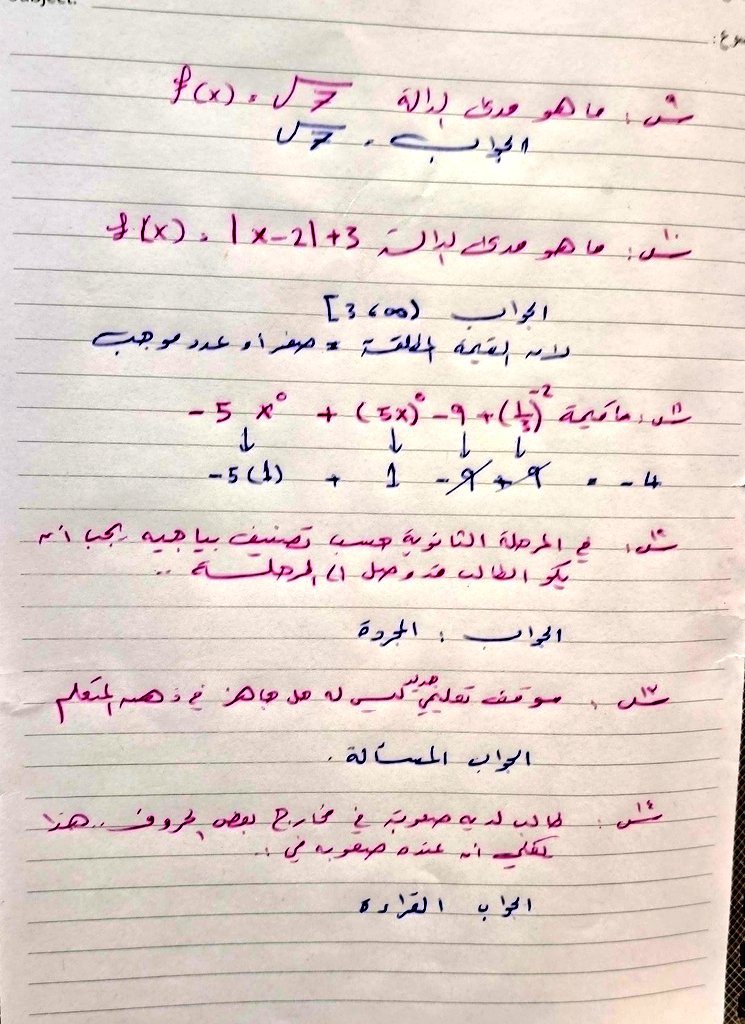 س٩: ما هو مدى الدالة f(x) = √7
الجواب = √7
س١٠: ما هو مدى الدالة f(x) = |x-2|+3
الجواب [3,∞)
لانه القيمة المطلقة = صفر او عدد موجب
س١١: ما قيمة -5 x⁰ + (5x)⁰ - 9 + (1/3)⁻²
↓ ↓ ↓ ↓
-5(1) + 1 - 9 + 9 = -4
في المرحلة الثانوية حسب تصنيف بياجيه يجب انه
يكو الطالب قد وصل الى المرحلة ..
الجواب : المجردة
س١٣: موقف تعليمي جديد ليس له حل جاهز في ذهن المتعلم
الجواب المسألة .
س١٤: طالب لديه صعوبة في مخارج بعض الحروف .. هذا
انه عنده صعوبه في :
الجواب القراءه